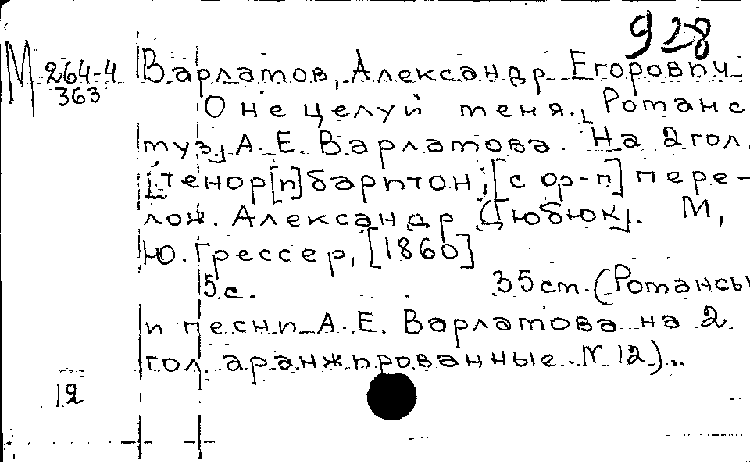 928
М 264-4
363
Варламов, Александр Егорович
О не целуй меня., Романс
муз. А. Е. Варламова. На 2 гол.
[тенор[и] баритон; [с ор-п] пере-
лож. Александр Дюбюк. М,
Ю. Грессер, [1860]
5с. 35 см. (Романсы
и песни А. Е. Варламова на 2
гол. аранжированные. N 12)...
12